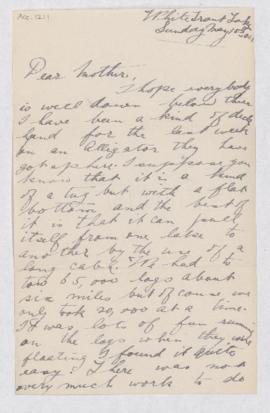 Acc. 1211
White Trout Lake
Sunday May 10th
Dear Mother,
I hope everybody
is well down below there
I have been a kind of deck
hand for the last week
on an Alligator they have
got up here. I suppose you
know that it is a kind
of a tug but with a flat
bottom and the best of
it is that it can pull
itself from one lake to
another by the use of a
long cable. We had to
tow 65,000 logs about
six miles but of course we
only took 20,000 at a time.
It was lots of fun running
on the logs when they were
floating I found it quite
easy. There was not
very much work to do